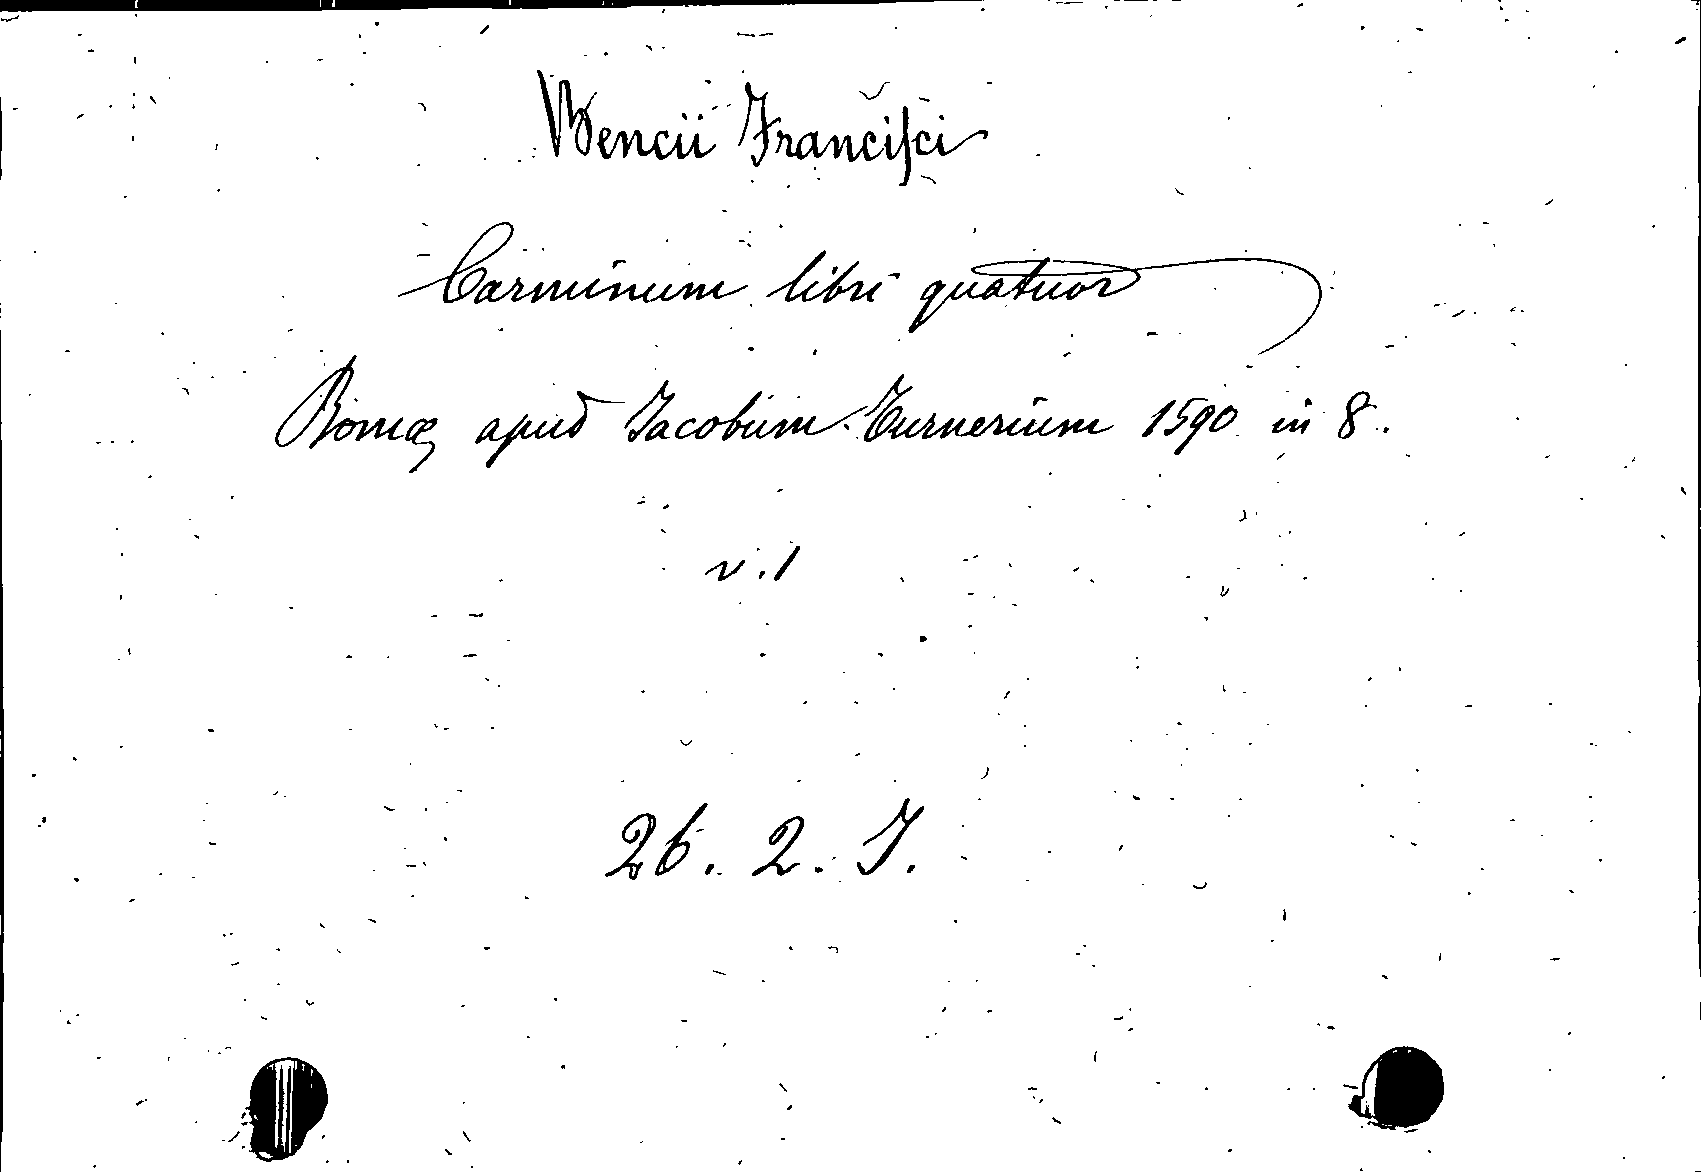 Bencii Franciſci
Carminum libri quatuor
Romæ apud Jacobum Turnerium 1590 in 8.
v. 1
26. 2. J.